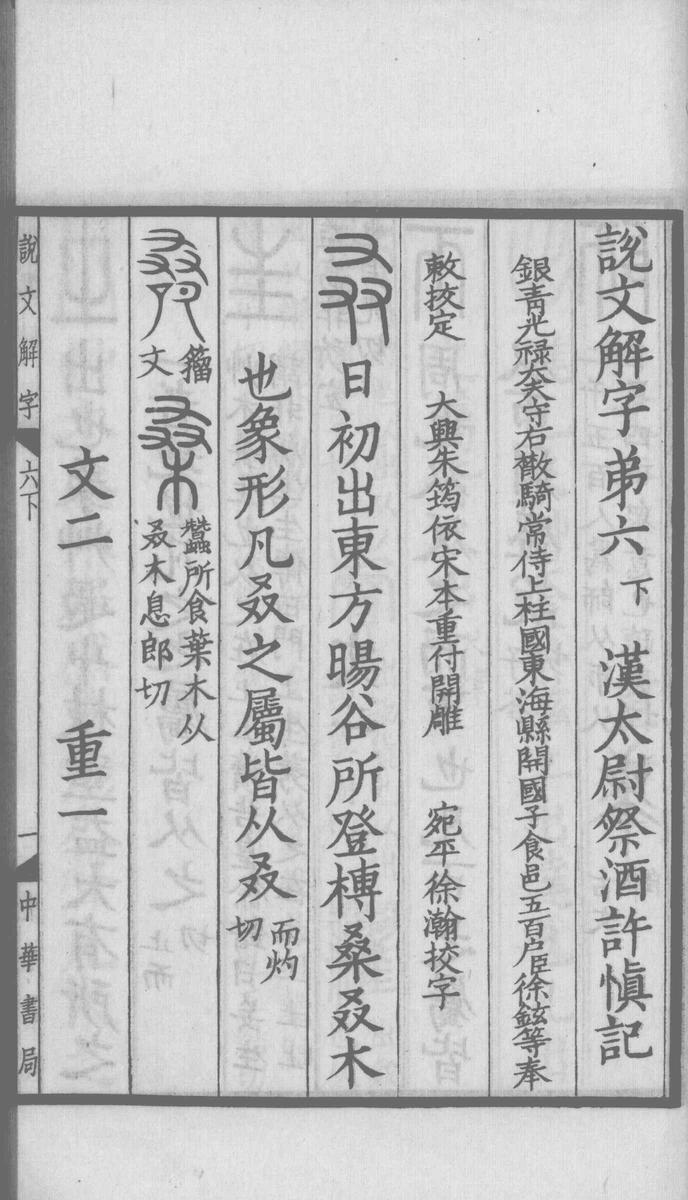 說文解字弟六下　漢太尉祭酒許慎記
銀青光禄大夫守右散騎常侍上柱國東海縣開國子食邑五百户臣徐鉉等奉
敕挍定　大興朱筠依宋本重付開雕　宛平徐瀚挍字
叒 日初出東方暘谷所登榑桑叒木
也象形凡叒之屬皆从叒 而灼
切
籀
文
桑 蠶所食葉木从
叒木息郎切
文二　重一
說文解字 六下 一 中華書局